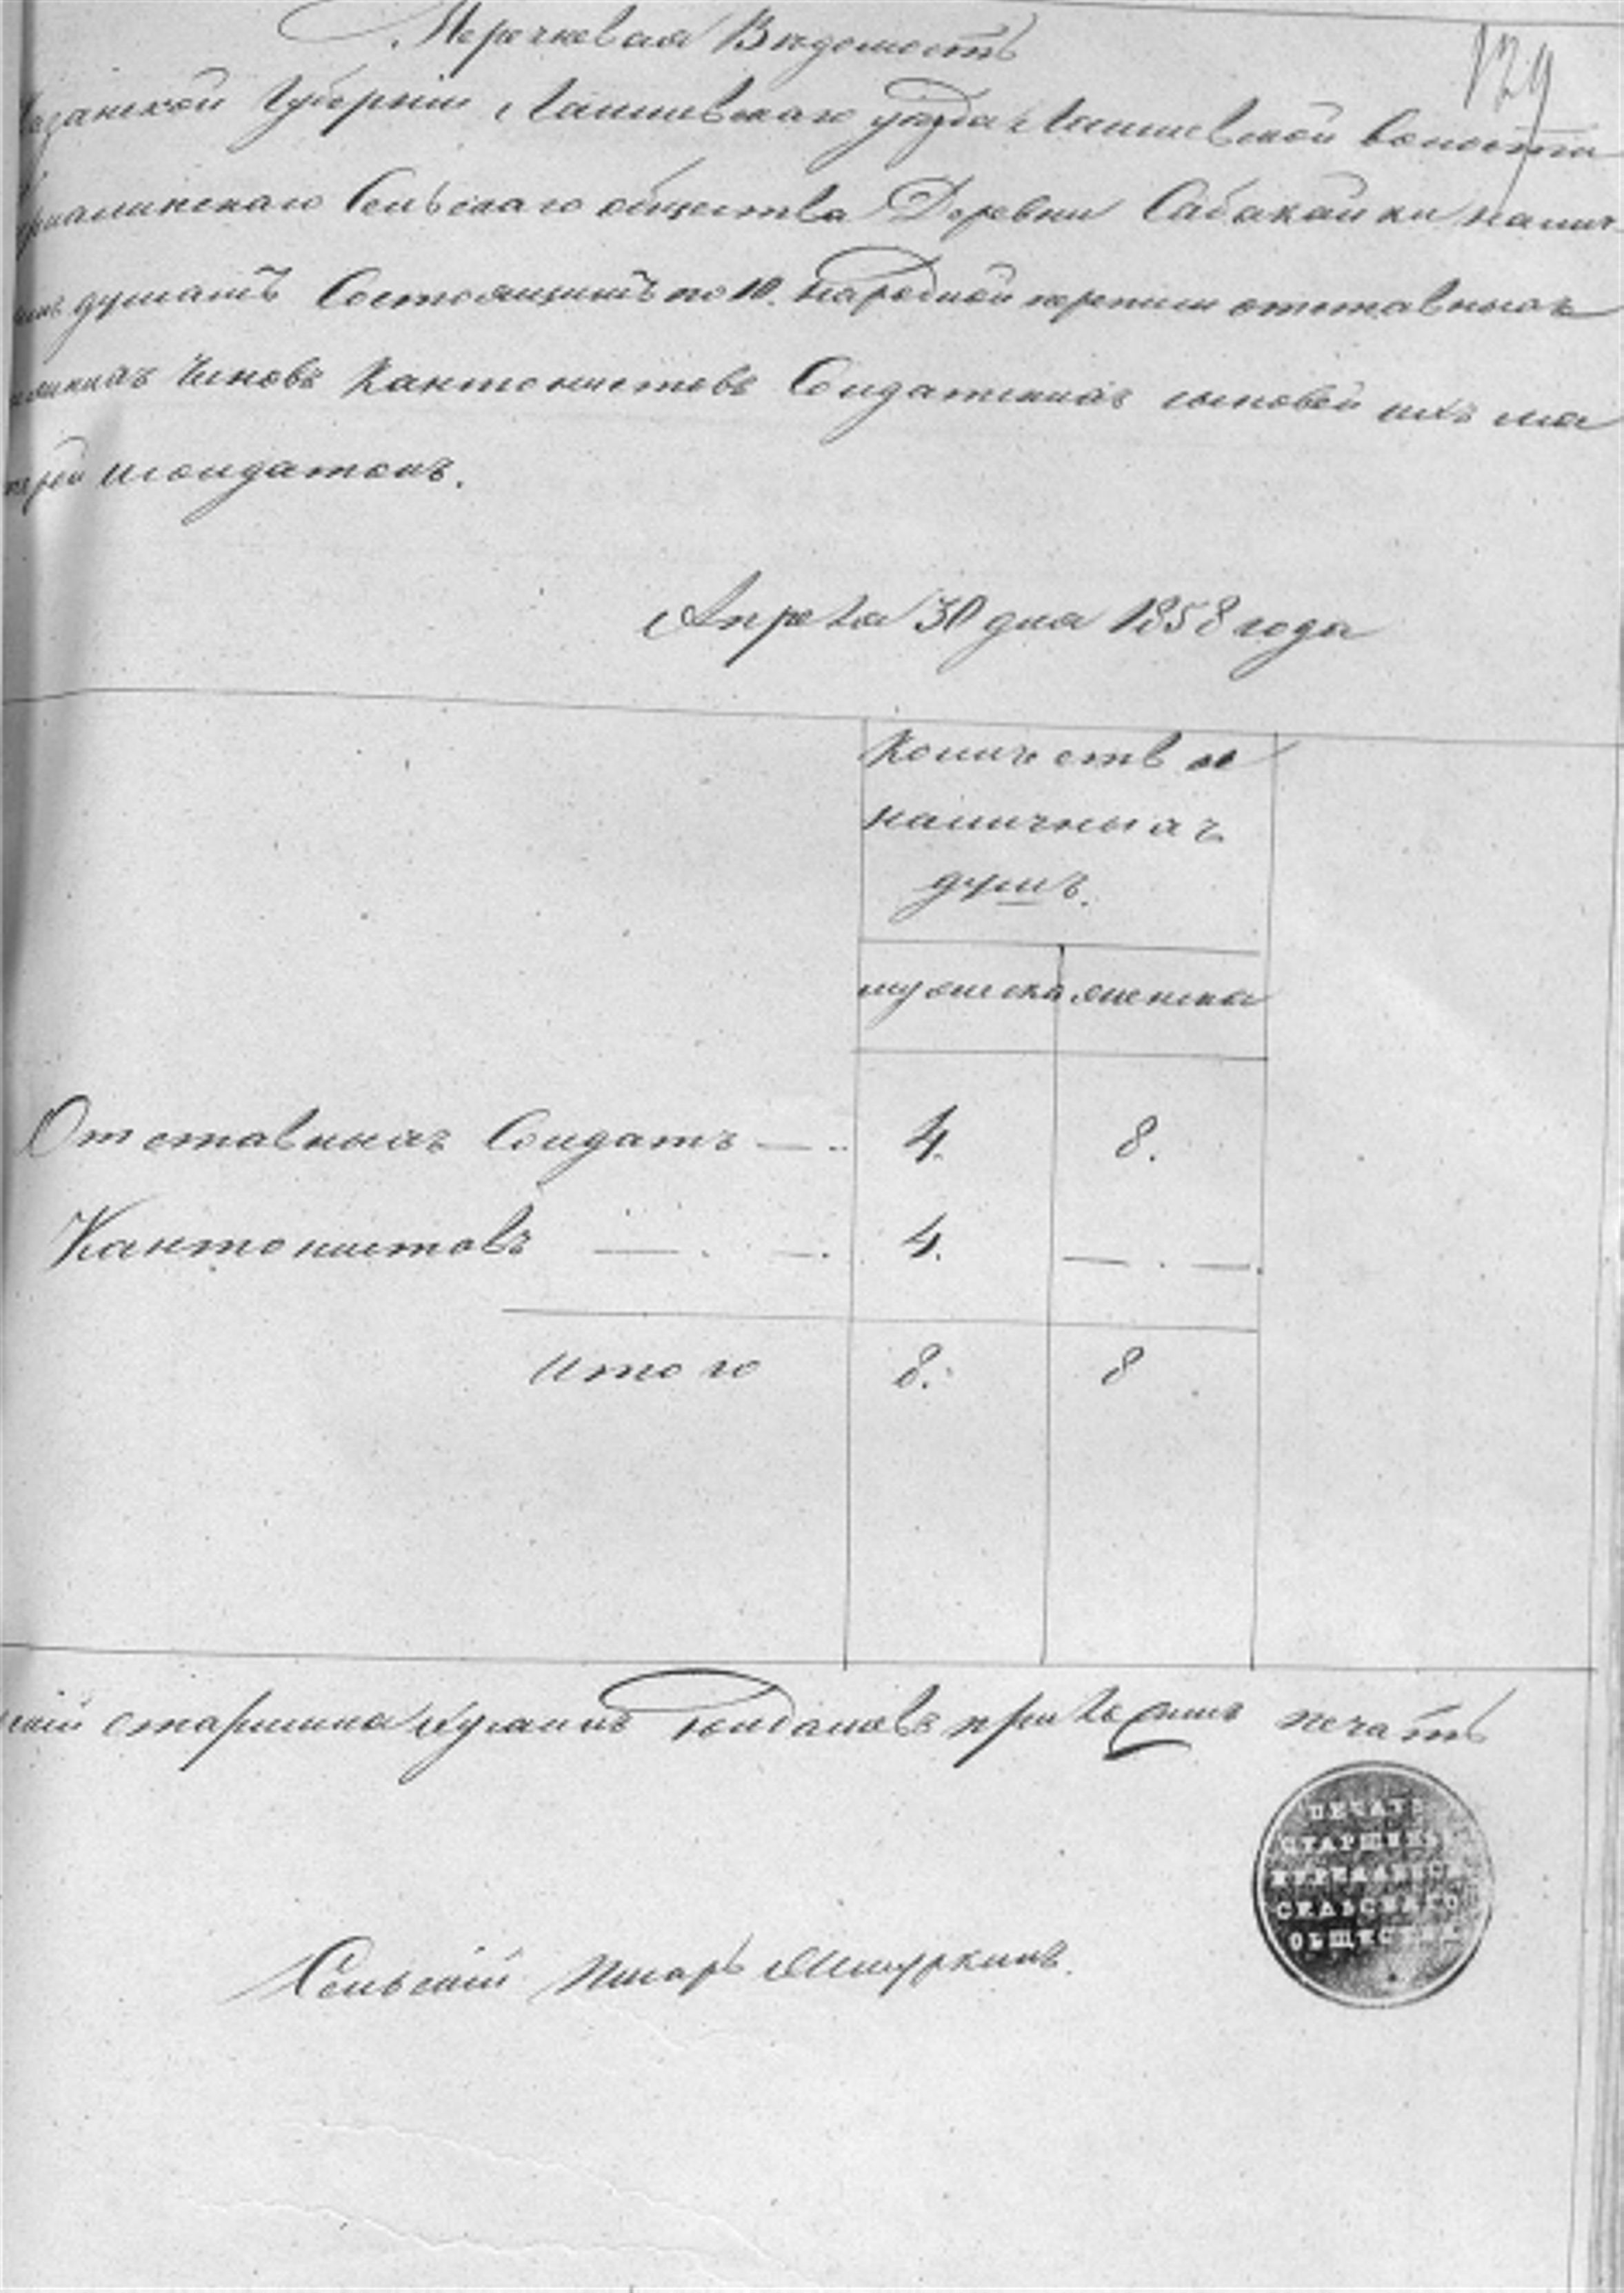 Перечневая Вѣдомость
129
Казанской Губерніи Лаишевскаго уѣзда Лаишевской волости
Сельскаго общества Деревни Сабакайки налич-
нымъ душамъ Состоящимъ по 10. народной переписи отставныхъ
нижнихъ Чиновъ Кантонистовъ Солдатскихъ сыновей ихъ ма
терей и солдатокъ.
Апреля 30 дня 1858 года
Количество
наличныхъ
душъ.
мужска женска
Отставныхъ Солдатъ — .. 4. 8.
Кантонистовъ — . — . 4. — . — .
Итого 8. 8
старшина приложилъ печать
ПЕЧАТЬ
СТАРШИНЫ
СЕЛЬСКАГО
ОБЩЕСТВА
Сельскій Писарь